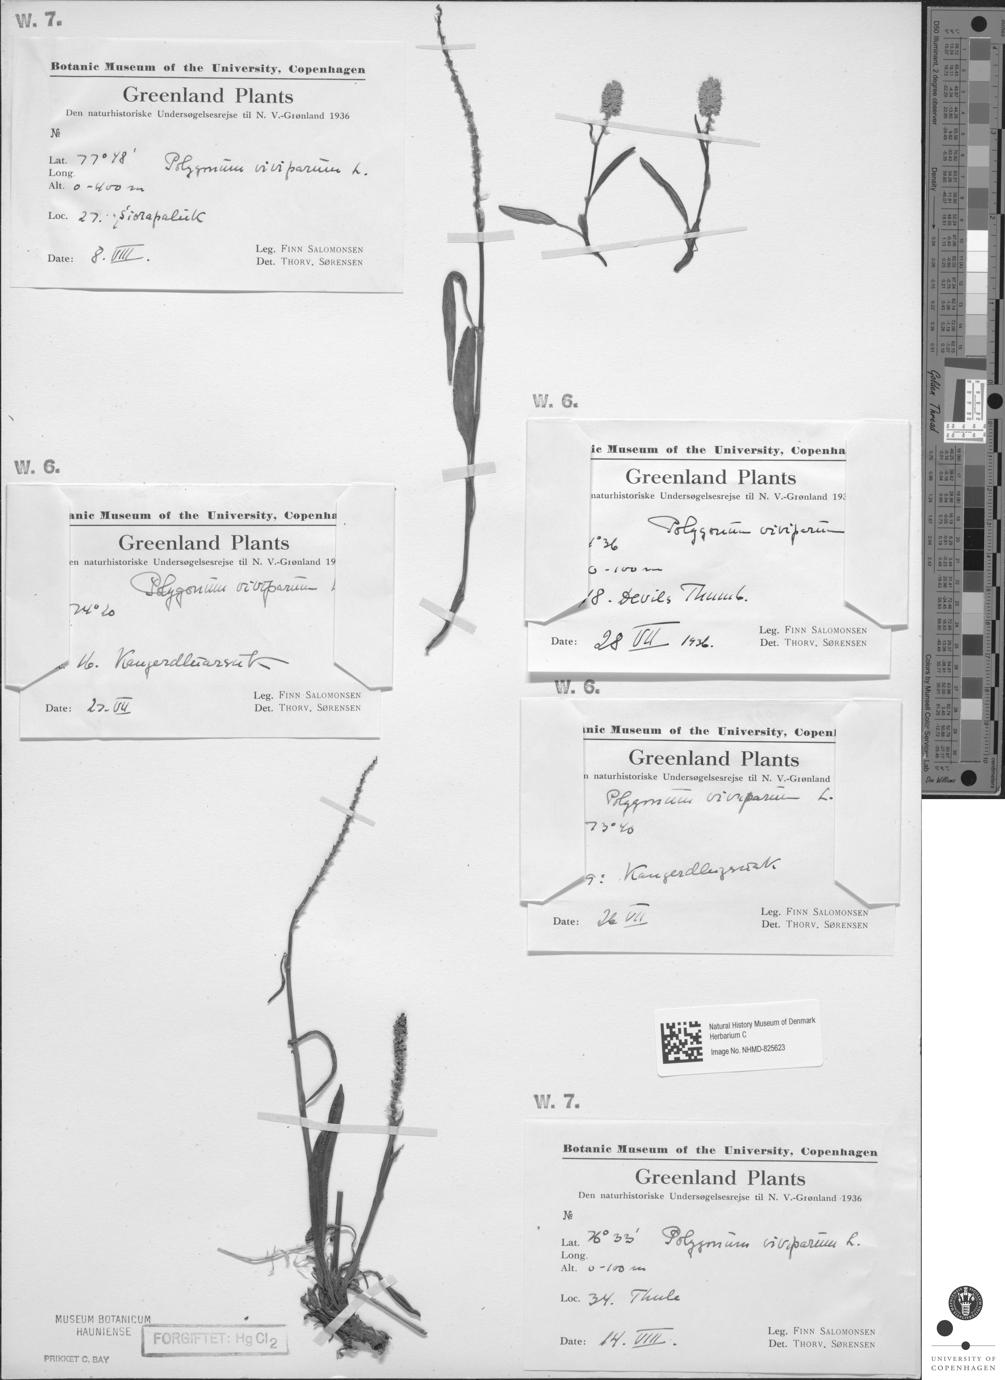 W. 7.
Botanic Museum of the University, Copenhagen
Greenland Plants
Den naturhistoriske Undersøgelsesrejse til N. V.-Grønland 1936
№
Lat. 77°48' Polygonum viviparum L.
Long.
Alt. 0-400 m
Loc. 27. Siorapaluk
Date: 8. VIII.
Leg. Finn Salomonsen
Det. Thorv. Sørensen
W. 6.
anic Museum of the University, Copenha
Greenland Plants
en naturhistoriske Undersøgelsesrejse til N. V.-Grønland 19
Polygonum viviparum L
74°20
16. Kangerdluarsuk
Date: 27. VII
Leg. Finn Salomonsen
Det. Thorv. Sørensen
W. 6.
ic Museum of the University, Copenha
Greenland Plants
naturhistoriske Undersøgelsesrejse til N. V.-Grønland 193
Polygonum viviparum
°36
0-100 m
18. Devils Thumb.
Date: 28 VII 1936.
Leg. Finn Salomonsen
Det. Thorv. Sørensen
W. 6.
anic Museum of the University, Copenl
Greenland Plants
n naturhistoriske Undersøgelsesrejse til N. V.-Grønland
Polygonum viviparum L.
73°40
9: Kangerdlugsuak
Date: 26 VII
Leg. Finn Salomonsen
Det. Thorv. Sørensen
Natural History Museum of Denmark
Herbarium C
Image No. NHMD-825623
W. 7.
Botanic Museum of the University, Copenhagen
Greenland Plants
Den naturhistoriske Undersøgelsesrejse til N. V.-Grønland 1936
№
Lat. 76°33' Polygonum viviparum L.
Long.
Alt. 0-100 m
Loc. 34. Thule
Date: 14. VIII.
Leg. Finn Salomonsen
Det. Thorv. Sørensen
MUSEUM BOTANICUM
HAUNIENSE
FORGIFTET: HgCl2
PRIKKET C. BAY
Golden Thread
D50 Illuminant, 2 degree observer
Density
Colors by Munsell Color Services Lab
UNIVERSITY OF
COPENHAGEN